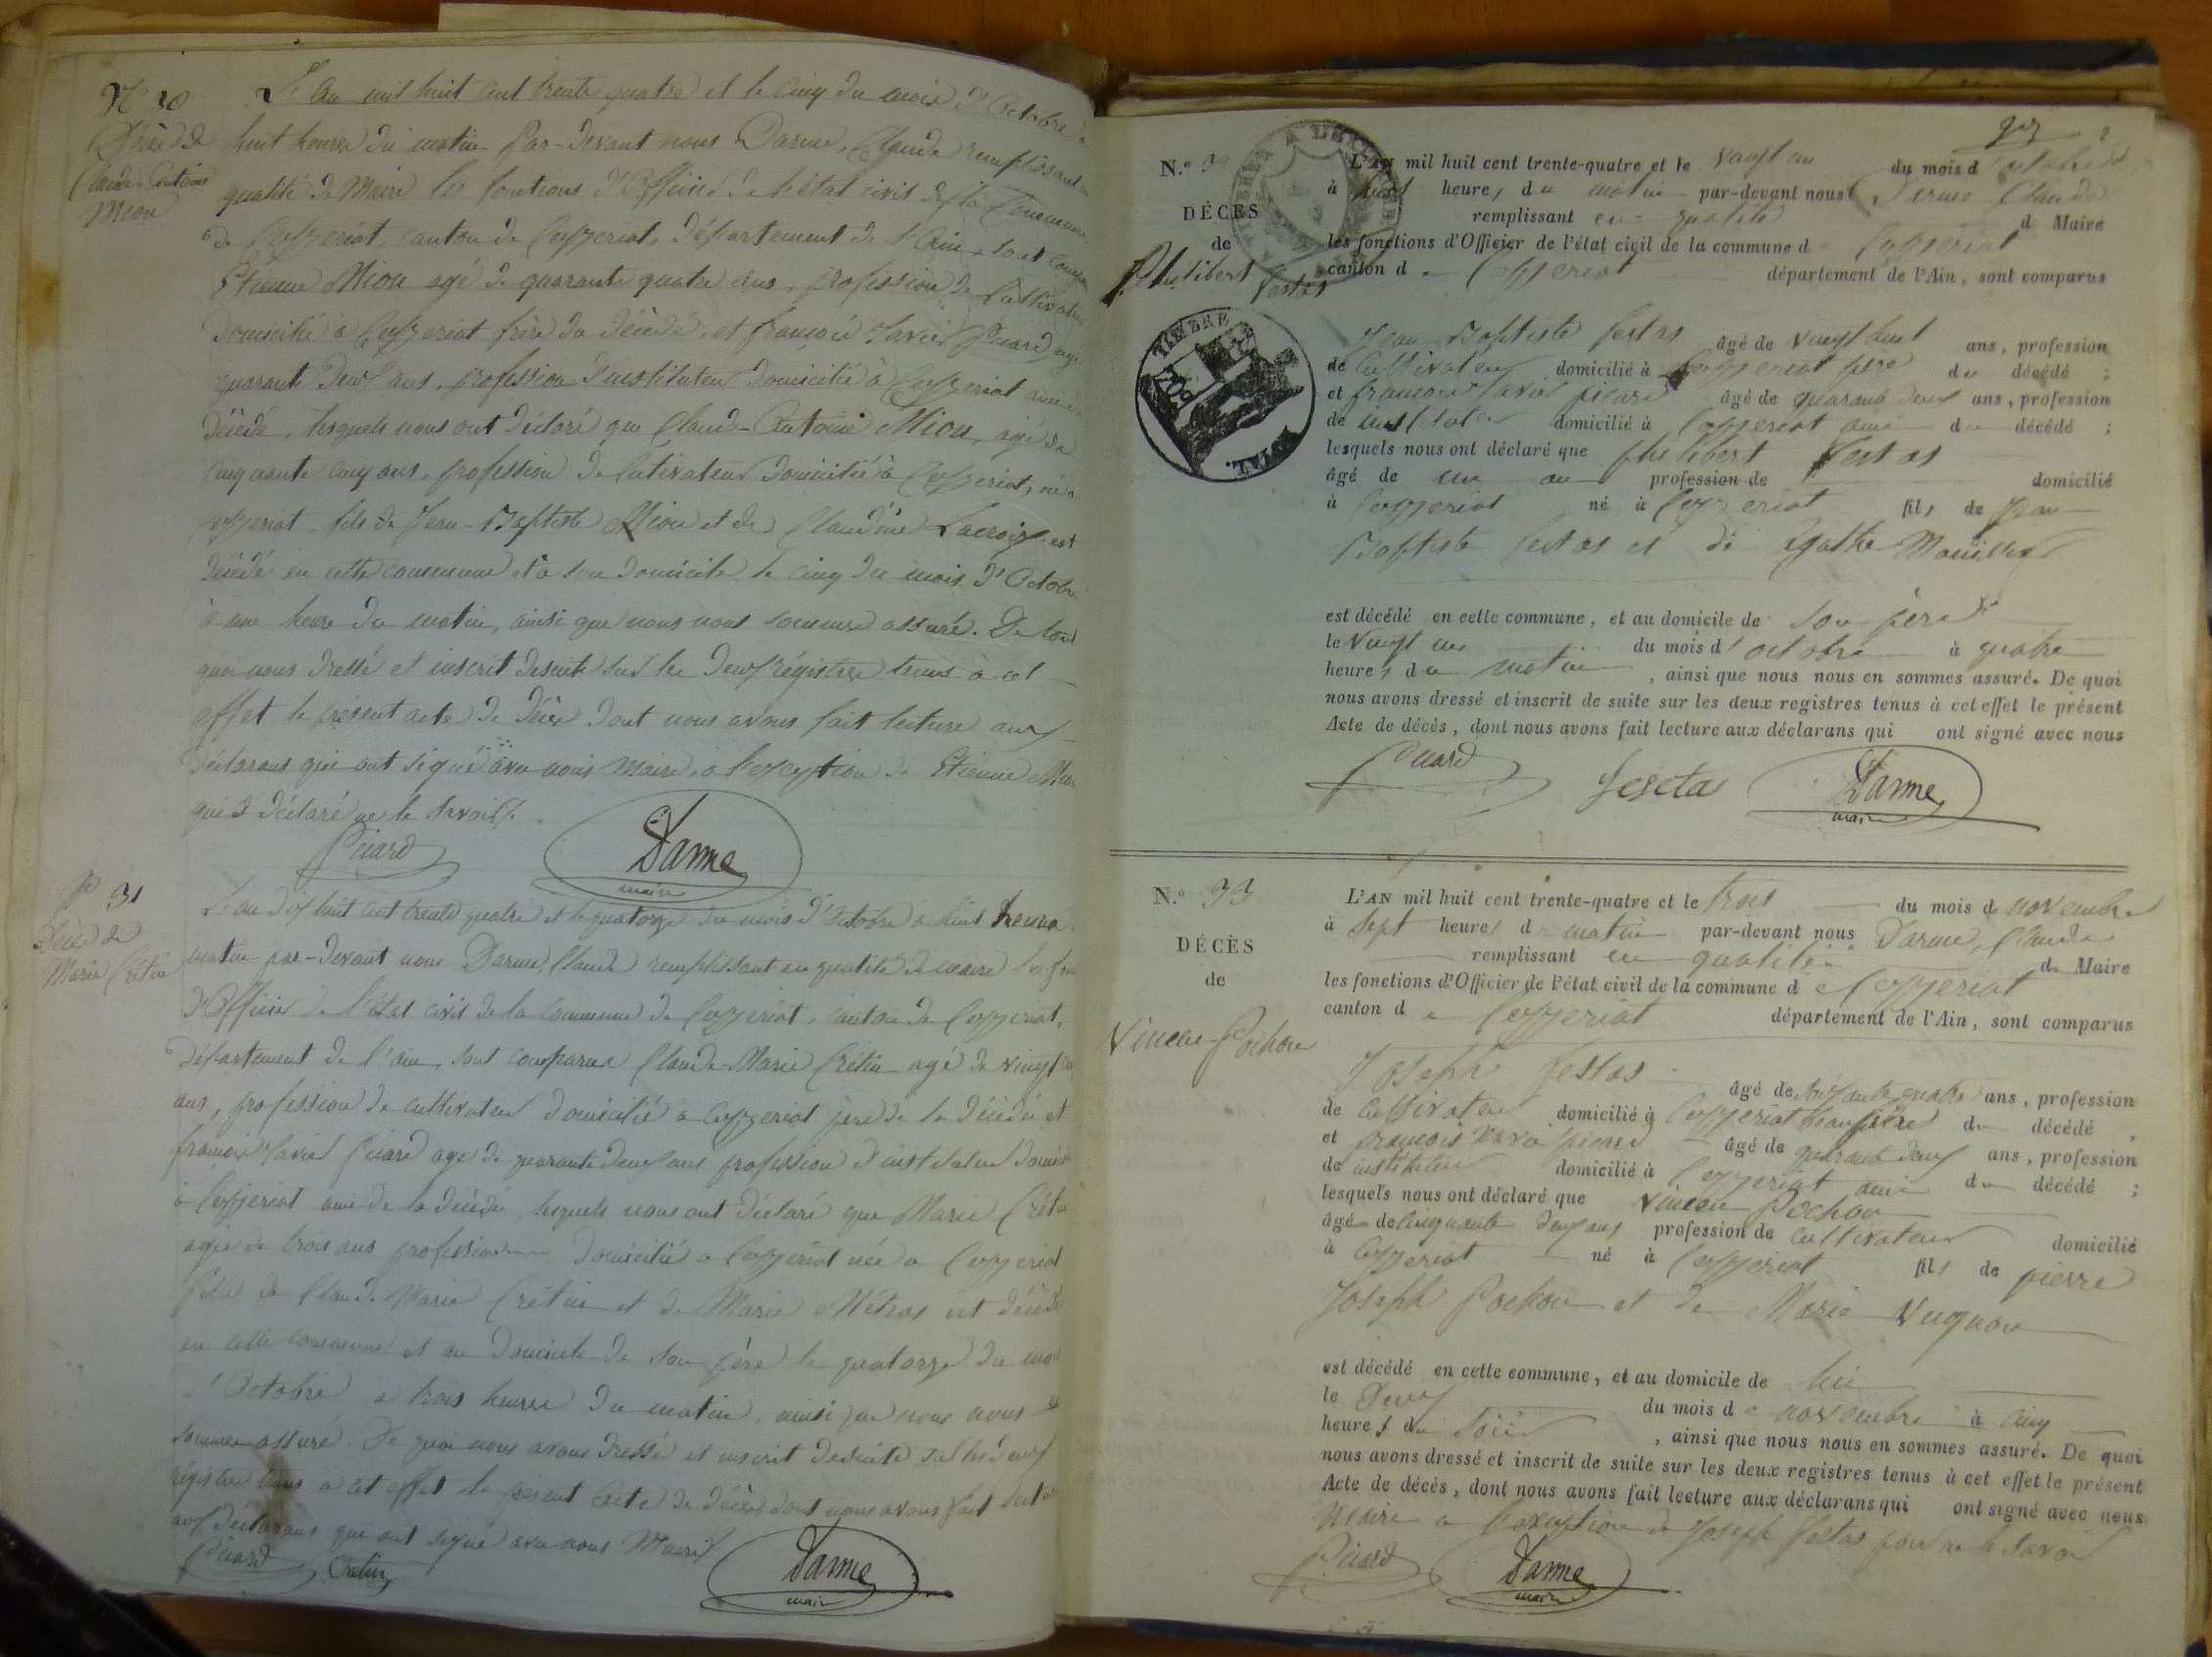 N° 30
Décès de
Claude Antoine
Miou
L'an mil huit cent trente quatre et le cinq du mois d'Octobre à
huit heures du matin Par-devant nous Darme, Claude remplissant en
qualité de Maire les fonctions d'Officier de l'état civil de la Commune
de Ceyzeriat, canton de Ceyzeriat, département de l'Ain, sont comparus
Etienne Miou agé de quarante quatre ans, profession de Cultivateur
Domicilié à Ceyzeriat frère du décédé, et françois Xavier Picard agé
quarante deux ans, profession d'instituteur Domicilié à Ceyzeriat ami du
décédé, lesquels nous ont déclaré que Claude-Antoine Miou, agé de
cinquante cinq ans, profession de Cultivateur Domicilié à Ceyzeriat, né à
Ceyzeriat fils de Jean-Baptiste Miou et de Claudine Lacroix est
décédé en cette commune et à son domicile le cinq du mois d'Octobre
à une heure du matin, ainsi que nous nous sommes assuré. De tout
quoi nous dressé et inscrit desuite sur les deux régistres tenus à cet
effet le présent acte de décès dont nous avons fait lecture aux
déclarans qui ont signé avec nous Maire, à l'exception de Etienne Miou
qui a déclaré ne le savoir.
Picard
Darme
maire
N° 31
Décès de
Marie Crétin
L'an dix huit cent trente quatre et le quatorze du mois d'Octobre à huit heures
matin par-devant nous Darme, Claude remplissant en qualité de maire les
d'Officier de l'état civil de la commune de Ceyzeriat, canton de Ceyzeriat,
département de l'ain, sont comparus Claude-Marie Crétin agé de vingt
ans, profession de cultivateur domicilié à Ceyzeriat père de la décédée et
françois Xavier Picard agé de quarante deux ans profession d'instituteur
à Ceyzeriat ami de la décédé, lesquels nous ont déclaré que Marie Crétin
agée de trois ans profession domicilié à Ceyzeriat née à Ceyzeriat
fille de Claude Marie Crétin et de Marie Métras est décédé
en cette commune et au domicile de son père le quatorze du mois
d'Octobre à trois heures du matin, ainsi que nous nous
sommes assuré. De quoi nous avons dressé et inscrit desuite sur les deux
régistres tenus à cet effet le présent acte de décès dont nous avons fait
aux déclarans qui ont signé avec nous Maire
Picard Cretin
Darme
maire
2
TIMBRE
N.°
DÉCÈS
de
Philibert Festas
L'AN mil huit cent trente-quatre et le vingt un du mois d octobre
à heures du matin par-devant nous Darme Claude
remplissant en qualité de Maire
les fonctions d'Officier de l'état civil de la commune d Ceyzeriat
canton d Ceyzeriat département de l'Ain, sont comparus
Jean Baptiste Festas âgé de vingt huit ans, profession
de Cultivateur domicilié à Ceyzeriat père du décédé ;
et françois Xavier picard âgé de quarante deux ans, profession
de instituteur domicilié à Ceyzeriat ami du décédé ;
lesquels nous ont déclaré que philibert Festas
âgé de un an profession de domicilié
à Ceyzeriat né à Ceyzeriat fils de Jean
Baptiste Festas et de Agathe
est décédé en cette commune, et au domicile de son père
le vingt un du mois d'octobre à quatre
heures du matin, ainsi que nous nous en sommes assuré. De quoi
nous avons dressé et inscrit de suite sur les deux registres tenus à cet effet le présent
Acte de décès, dont nous avons fait lecture aux déclarans qui ont signé avec nous
Picard Festas Darme
maire
N.° 33
DÉCÈS
de
Vincent Pochon
L'AN mil huit cent trente-quatre et le trois du mois de novembre
à sept heures d matin par-devant nous Darme, Claude
remplissant en qualité de Maire
les fonctions d'Officier de l'état civil de la commune de Ceyzeriat
canton de Ceyzeriat département de l'Ain, sont comparus
Joseph Festas âgé de soixante quatre ans, profession
de Cultivateur domicilié à Ceyzeriat beaufrère du décédé
et françois Xavier picard âgé de quarante deux ans, profession
de instituteur domicilié à Ceyzeriat ami du décédé ;
lesquels nous ont déclaré que Vincent Pochon
âgé de cinquante deux ans profession de cultivateur domicilié
à Ceyzeriat né à Ceyzeriat fils de pierre
Joseph Pochon et de Marie Vugnon
est décédé en cette commune, et au domicile de lui
le deux du mois de novembre à cinq
heures du soir, ainsi que nous nous en sommes assuré. De quoi
nous avons dressé et inscrit de suite sur les deux registres tenus à cet effet le présent
Acte de décès, dont nous avons fait lecture aux déclarans qui ont signé avec nous
Maire à l'exception de Joseph Festas pour ne le savoir
Picard Darme
maire